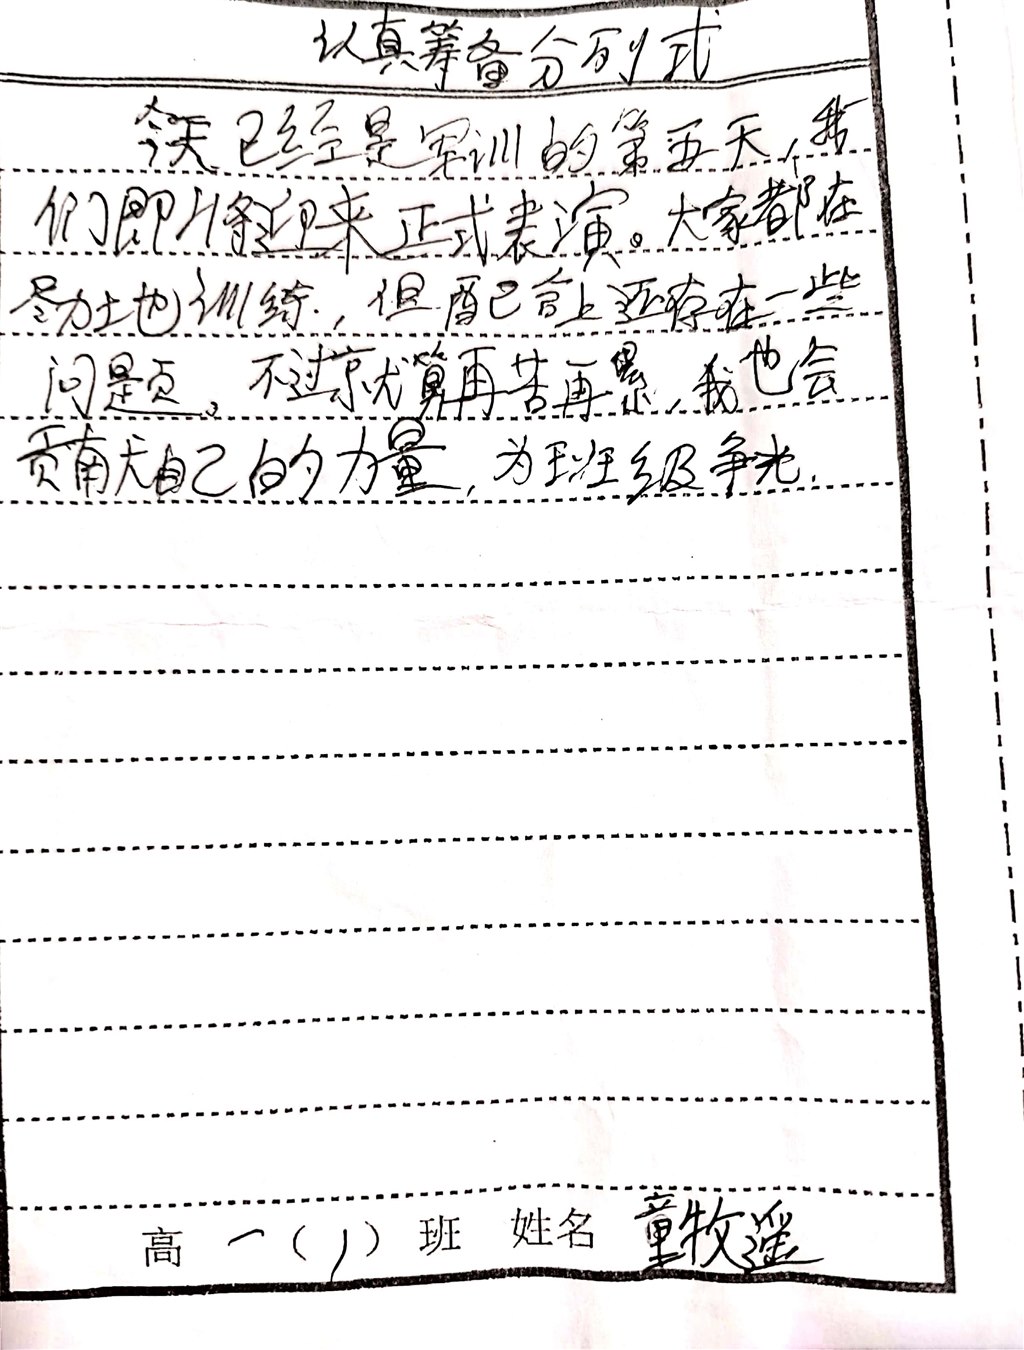 认真筹备分列式
今天已经是军训的第五天,我
们即将迎来正式表演。大家都在
尽力地训练,但配合上还存在一些
问题。不过就算再苦再累,我也会
贡献自己的力量,为班级争光.
高一(1)班 姓名 童牧遥